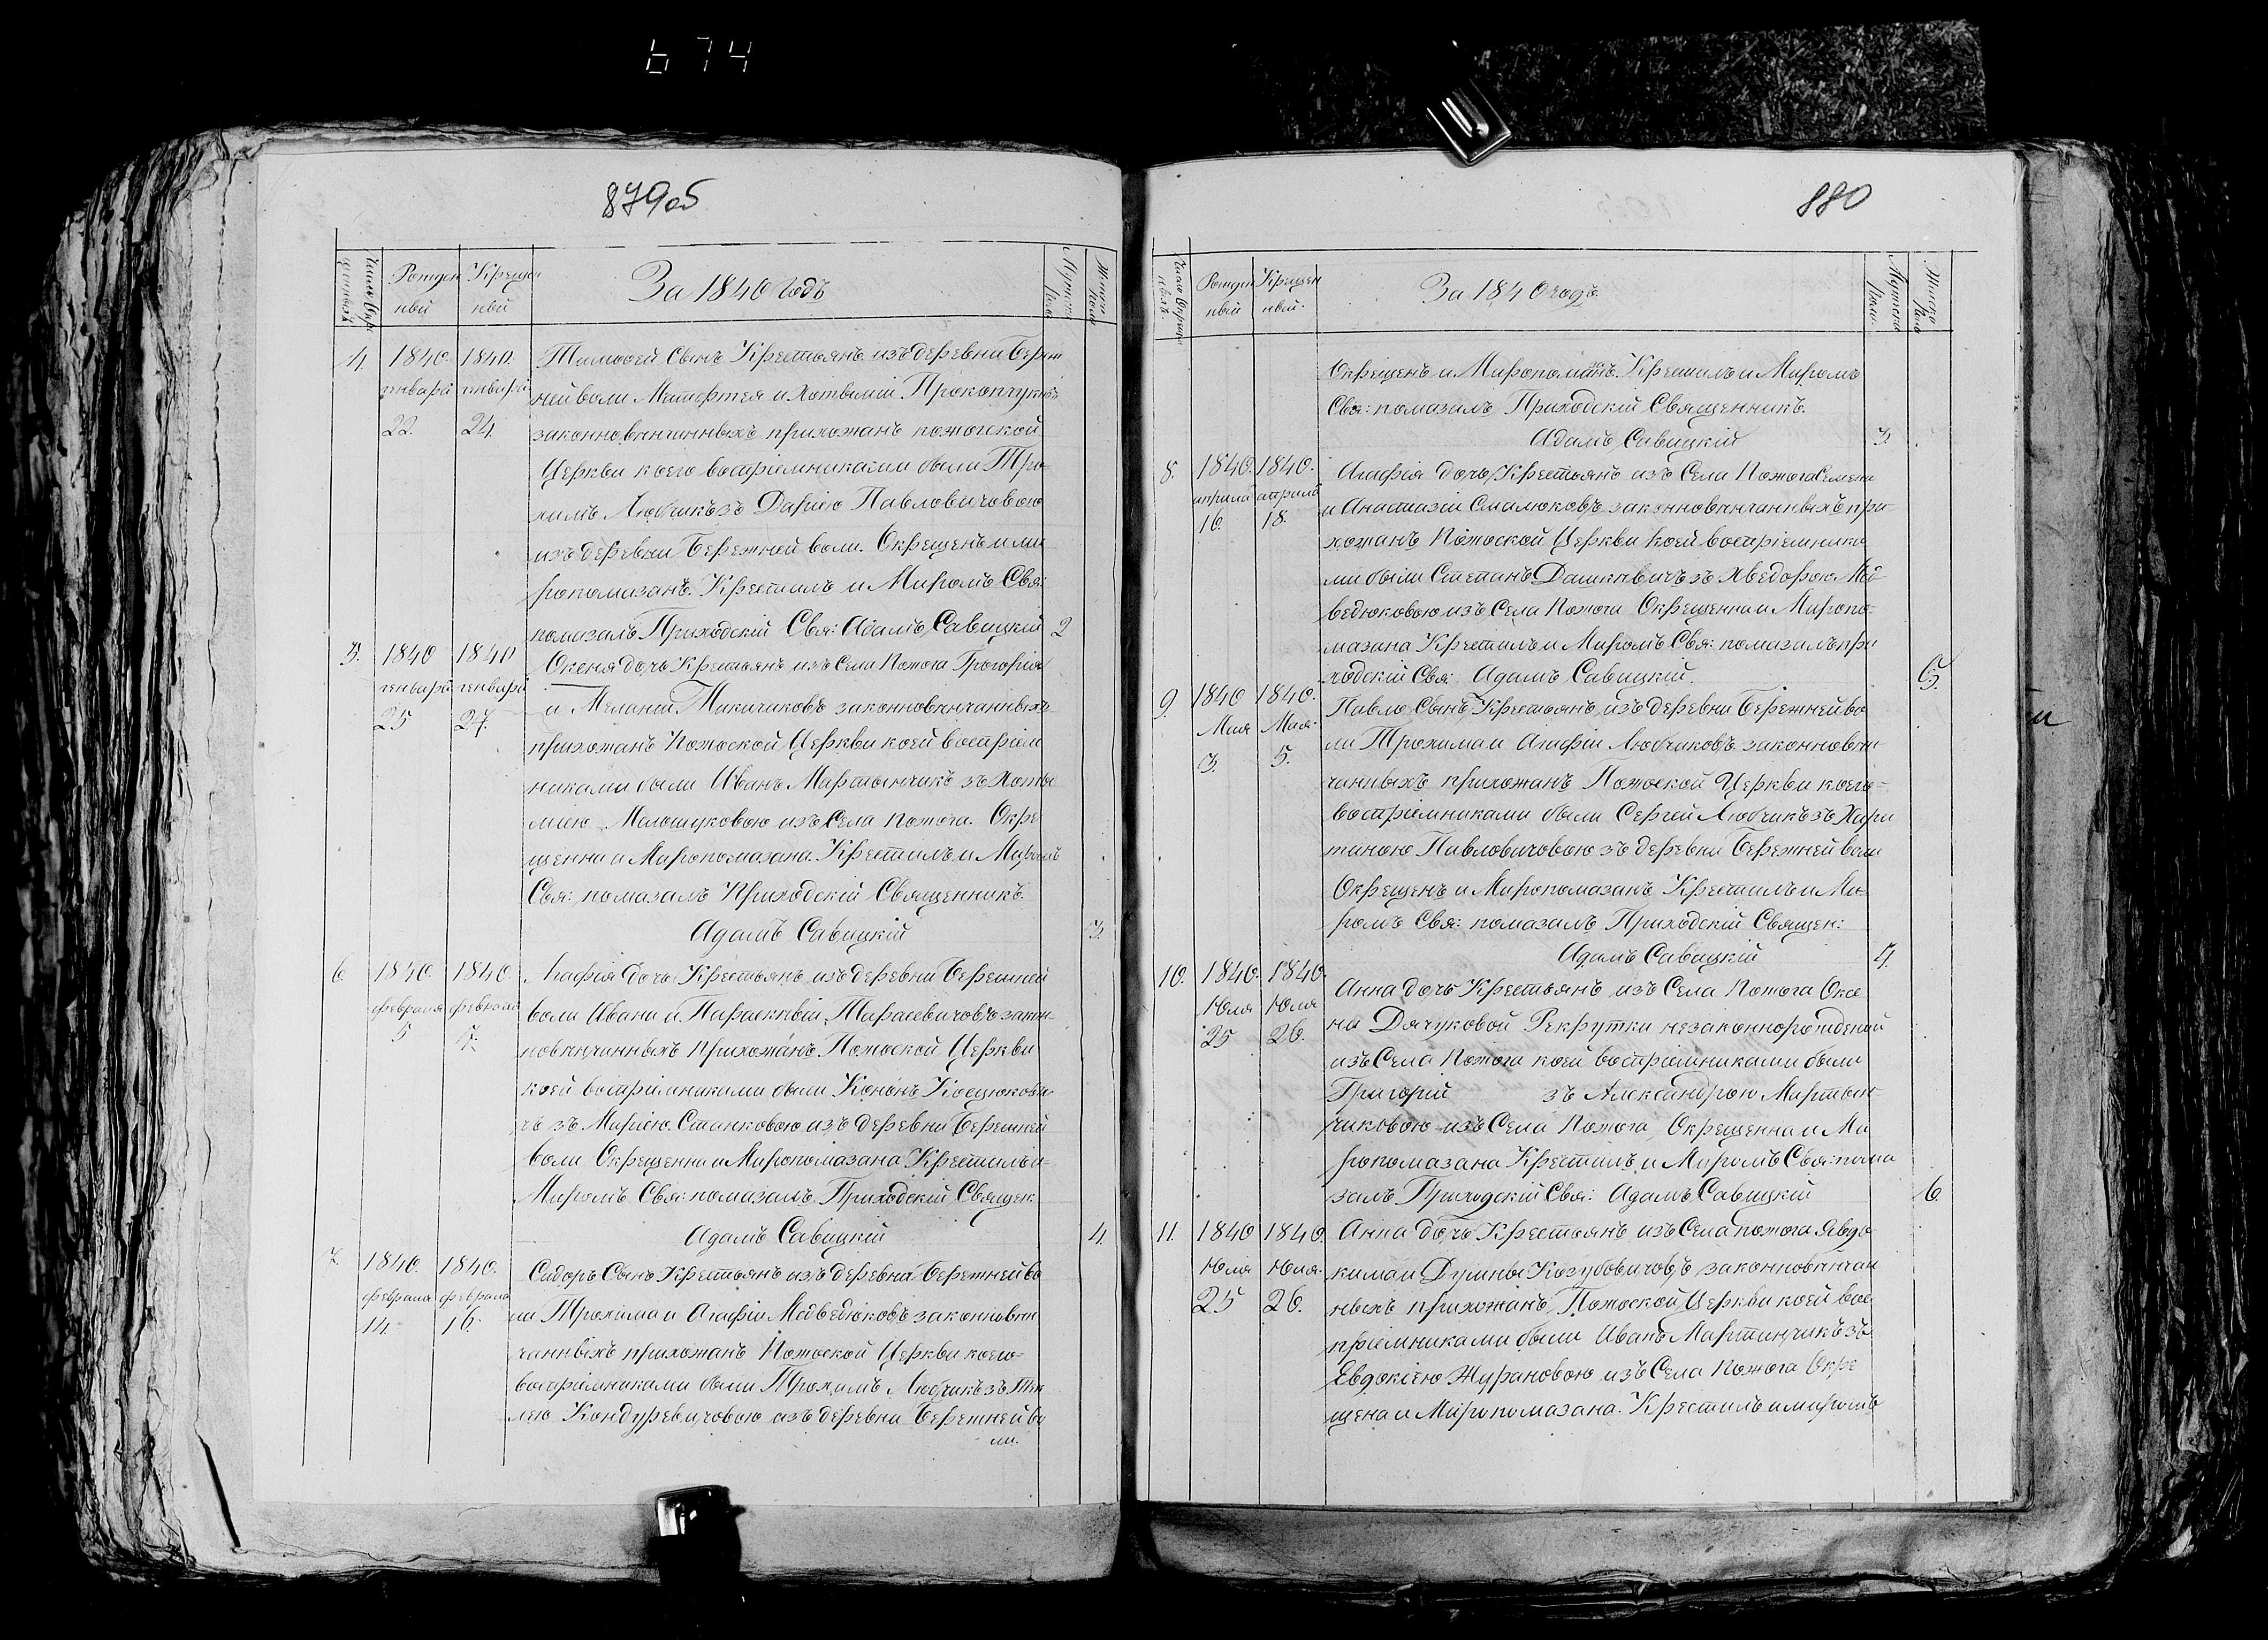 674
879об
За 1840 годъ
Рожден Крещен
ный ный
Мужеска Пола
Женска Пола
4. 1840. 1840. Тимофей Сынъ Крестьянъ изъ деревни Береж
генваря генваря ней воли и Прокопчуковъ
22. 24. законновенчанныхъ прихожанъ пожогской
Церкви коего воспріемниками были Тро-
химъ Любчикъ зъ Даріею Павловичовою
изъ деревни Бережней воли. Окрещенъ и ми
ропомазанъ. Крестилъ и Миромъ Свя:
помазалъ Приходскій Свя: Адамъ Савицкій 2
5. 1840 1840 Оксеня дочь Крестьянъ изъ Села Пожога Григорія
генваря генваря и Меланіи законновенчанныхъ
25 27. прихожанъ Пожоской Церкви коей воспріем
никами были Иванъ Мартынчикъ зъ Хоты
міею изъ Села Пожога. Окре
щенна и Миропомазана. Крестилъ и Миромъ
Свя: помазалъ Приходскій Священникъ.
Адамъ Савицкій 3.
6 1840. 1840 Агафія Дочь Крестьянъ изъ деревни Бережней
февраля февраля воли Ивана и Параскевіи Тарасевичовъ закон-
5 7. новенчанныхъ Прихожанъ Пожоской Церкви
коей воспріемниками были Кононъ Косцюкови
чъ зъ Маріею Станковою изъ деревни Бережней
воли Окрещенна и Миропомазана Крестилъ и-
Миромъ Свя: помазалъ Приходскій Священ:
Адамъ Савицкій 4.
7. 1840. 1840. Сидоръ Сынъ Крестьянъ изъ деревни Бережней во
февраля февраля ли Трохима и Агафіи Медведюковъ законновен
14 16. чанныхъ прихожанъ Пожоской Церкви коего-
воспріемниками были Трохимъ Любчикъ зъ Тек
лею Кондуревичовою изъ деревни Бережней во
ли.
880
За 1840 годъ
Рожден Крещен
ный ный.
Мужеска Пола.
Женска Пола
Окрещенъ и Миропомазанъ. Крестилъ и Миромъ
Свя: помазалъ Приходскій Священникъ.
Адамъ Савицкій 3.
8. 1840. 1840. Агафія дочь Крестьянъ изъ Села Пожога Семена
априля априля и Анастазіи Смалюковъ законновенчанныхъ при-
16. 18. хожанъ Пожоской Церкви коей воспріемника
ми были Степанъ Дашкевичъ зъ Хведорою Мед
ведюковою изъ Села Пожоги Окрещенна и Миропо-
мазана Крестилъ и Миромъ Свя: помазалъ при
ходскій Свя: Адамъ Савицкій. 5.
9. 1840 1840. Павло Сынъ Крестьянъ изъ деревни Бережней во
Мая Мая. ли Трохима и Агафіи Любчиковъ законновен-
3. 5. чанныхъ прихожанъ Пожоской Церкви коего-
воспріемниками были Сергей Любчикъ зъ Хари
тиною Павловичовою зъ деревни Бережней воли
Окрещенъ и Миропомазанъ Крестилъ и Ми-
ромъ Свя: помазалъ Приходскій Священ:
Адамъ Савицкій 4.
10. 1840. 1840. Анна дочь Крестьянъ изъ Села Пожога Оксе
Юля Юля ни Дячуковой Рекрутки незаконнорожденной
25 26. изъ Села Пожога коей воспріемниками были
Григорій зъ Александрою Мартын-
чиковою изъ Села Пожога Окрещенна и Ми
ропомазана Крестилъ и Миромъ Свя: пома
залъ Приходскій Свя: Адамъ Савицкій 6.
11. 1840 1840. Анна дочь Крестьянъ изъ Села пожога Явдо
Юля Юля. кима и Думны Козубовичовъ законновенчан
25 26. ныхъ прихожанъ Пожоской Церкви коей вос
пріемниками были Иванъ Мартинчикъ зъ
Евдокіею Журановою изъ Села Пожога Окре
щена и Миропомазана. Крестилъ и миромъ